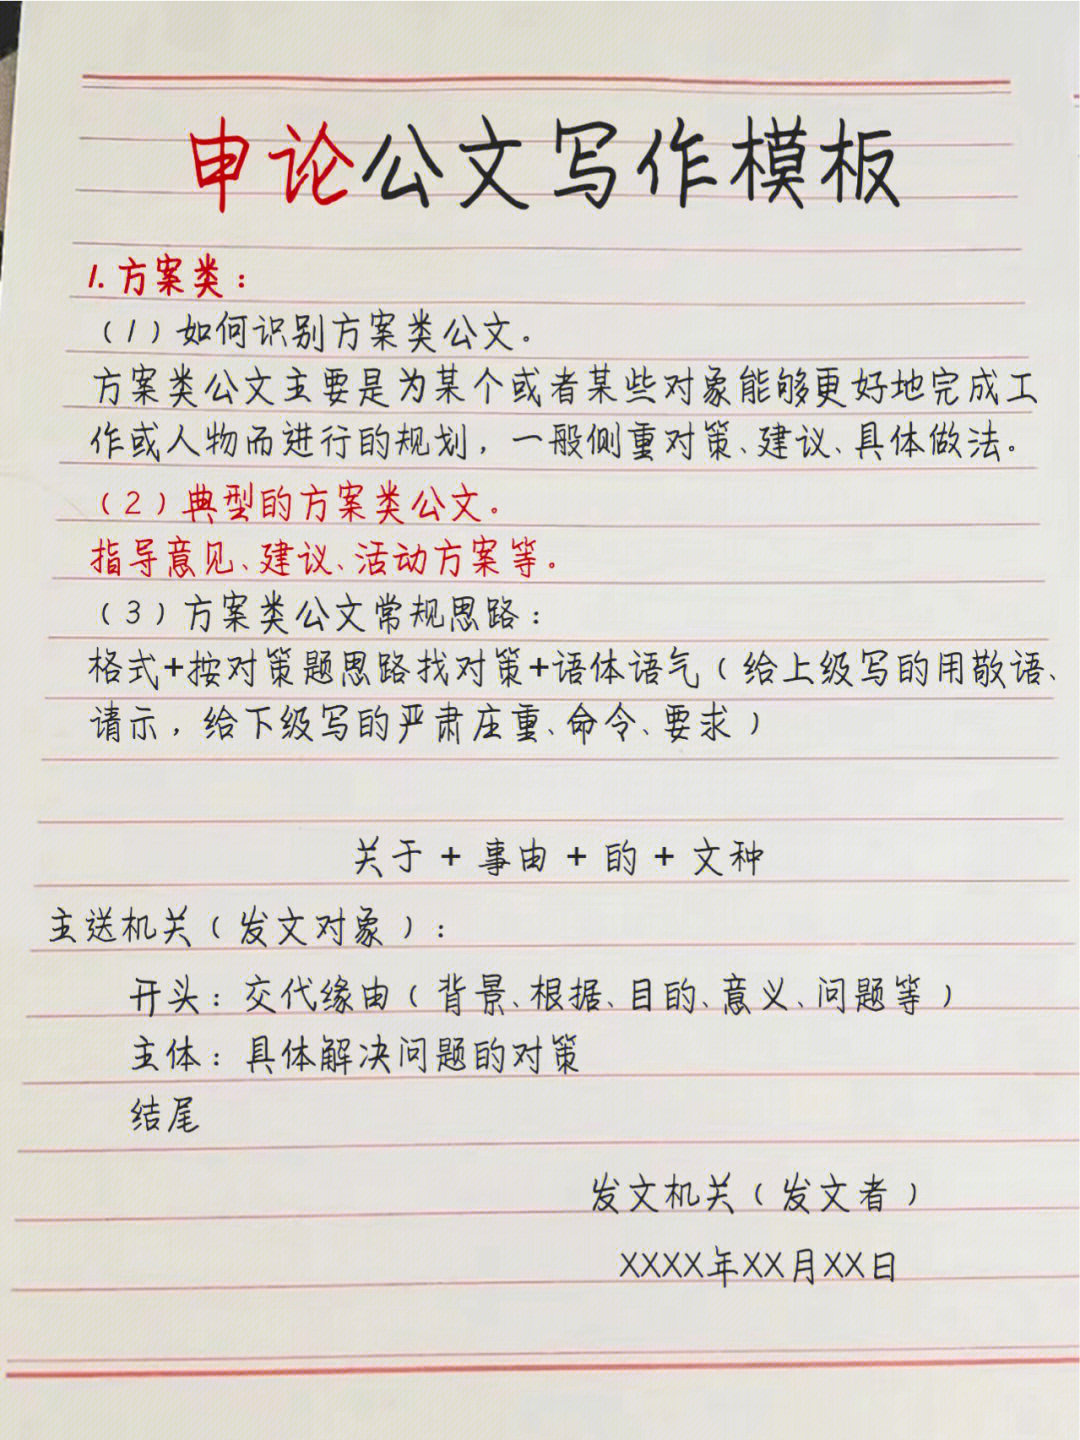 申论公文写作模板
1.方案类：
（1）如何识别方案类公文。
方案类公文主要是为某个或者某些对象能够更好地完成工
作或人物而进行的规划，一般侧重对策、建议、具体做法。
（2）典型的方案类公文。
指导意见、建议、活动方案等。
（3）方案类公文常规思路：
格式+按对策题思路找对策+语体语气（给上级写的用敬语、
请示，给下级写的严肃庄重、命令、要求）
关于+事由+的+文种
主送机关（发文对象）：
开头：交代缘由（背景、根据、目的、意义、问题等）
主体：具体解决问题的对策
结尾
发文机关（发文者）
XXXX年XX月XX日